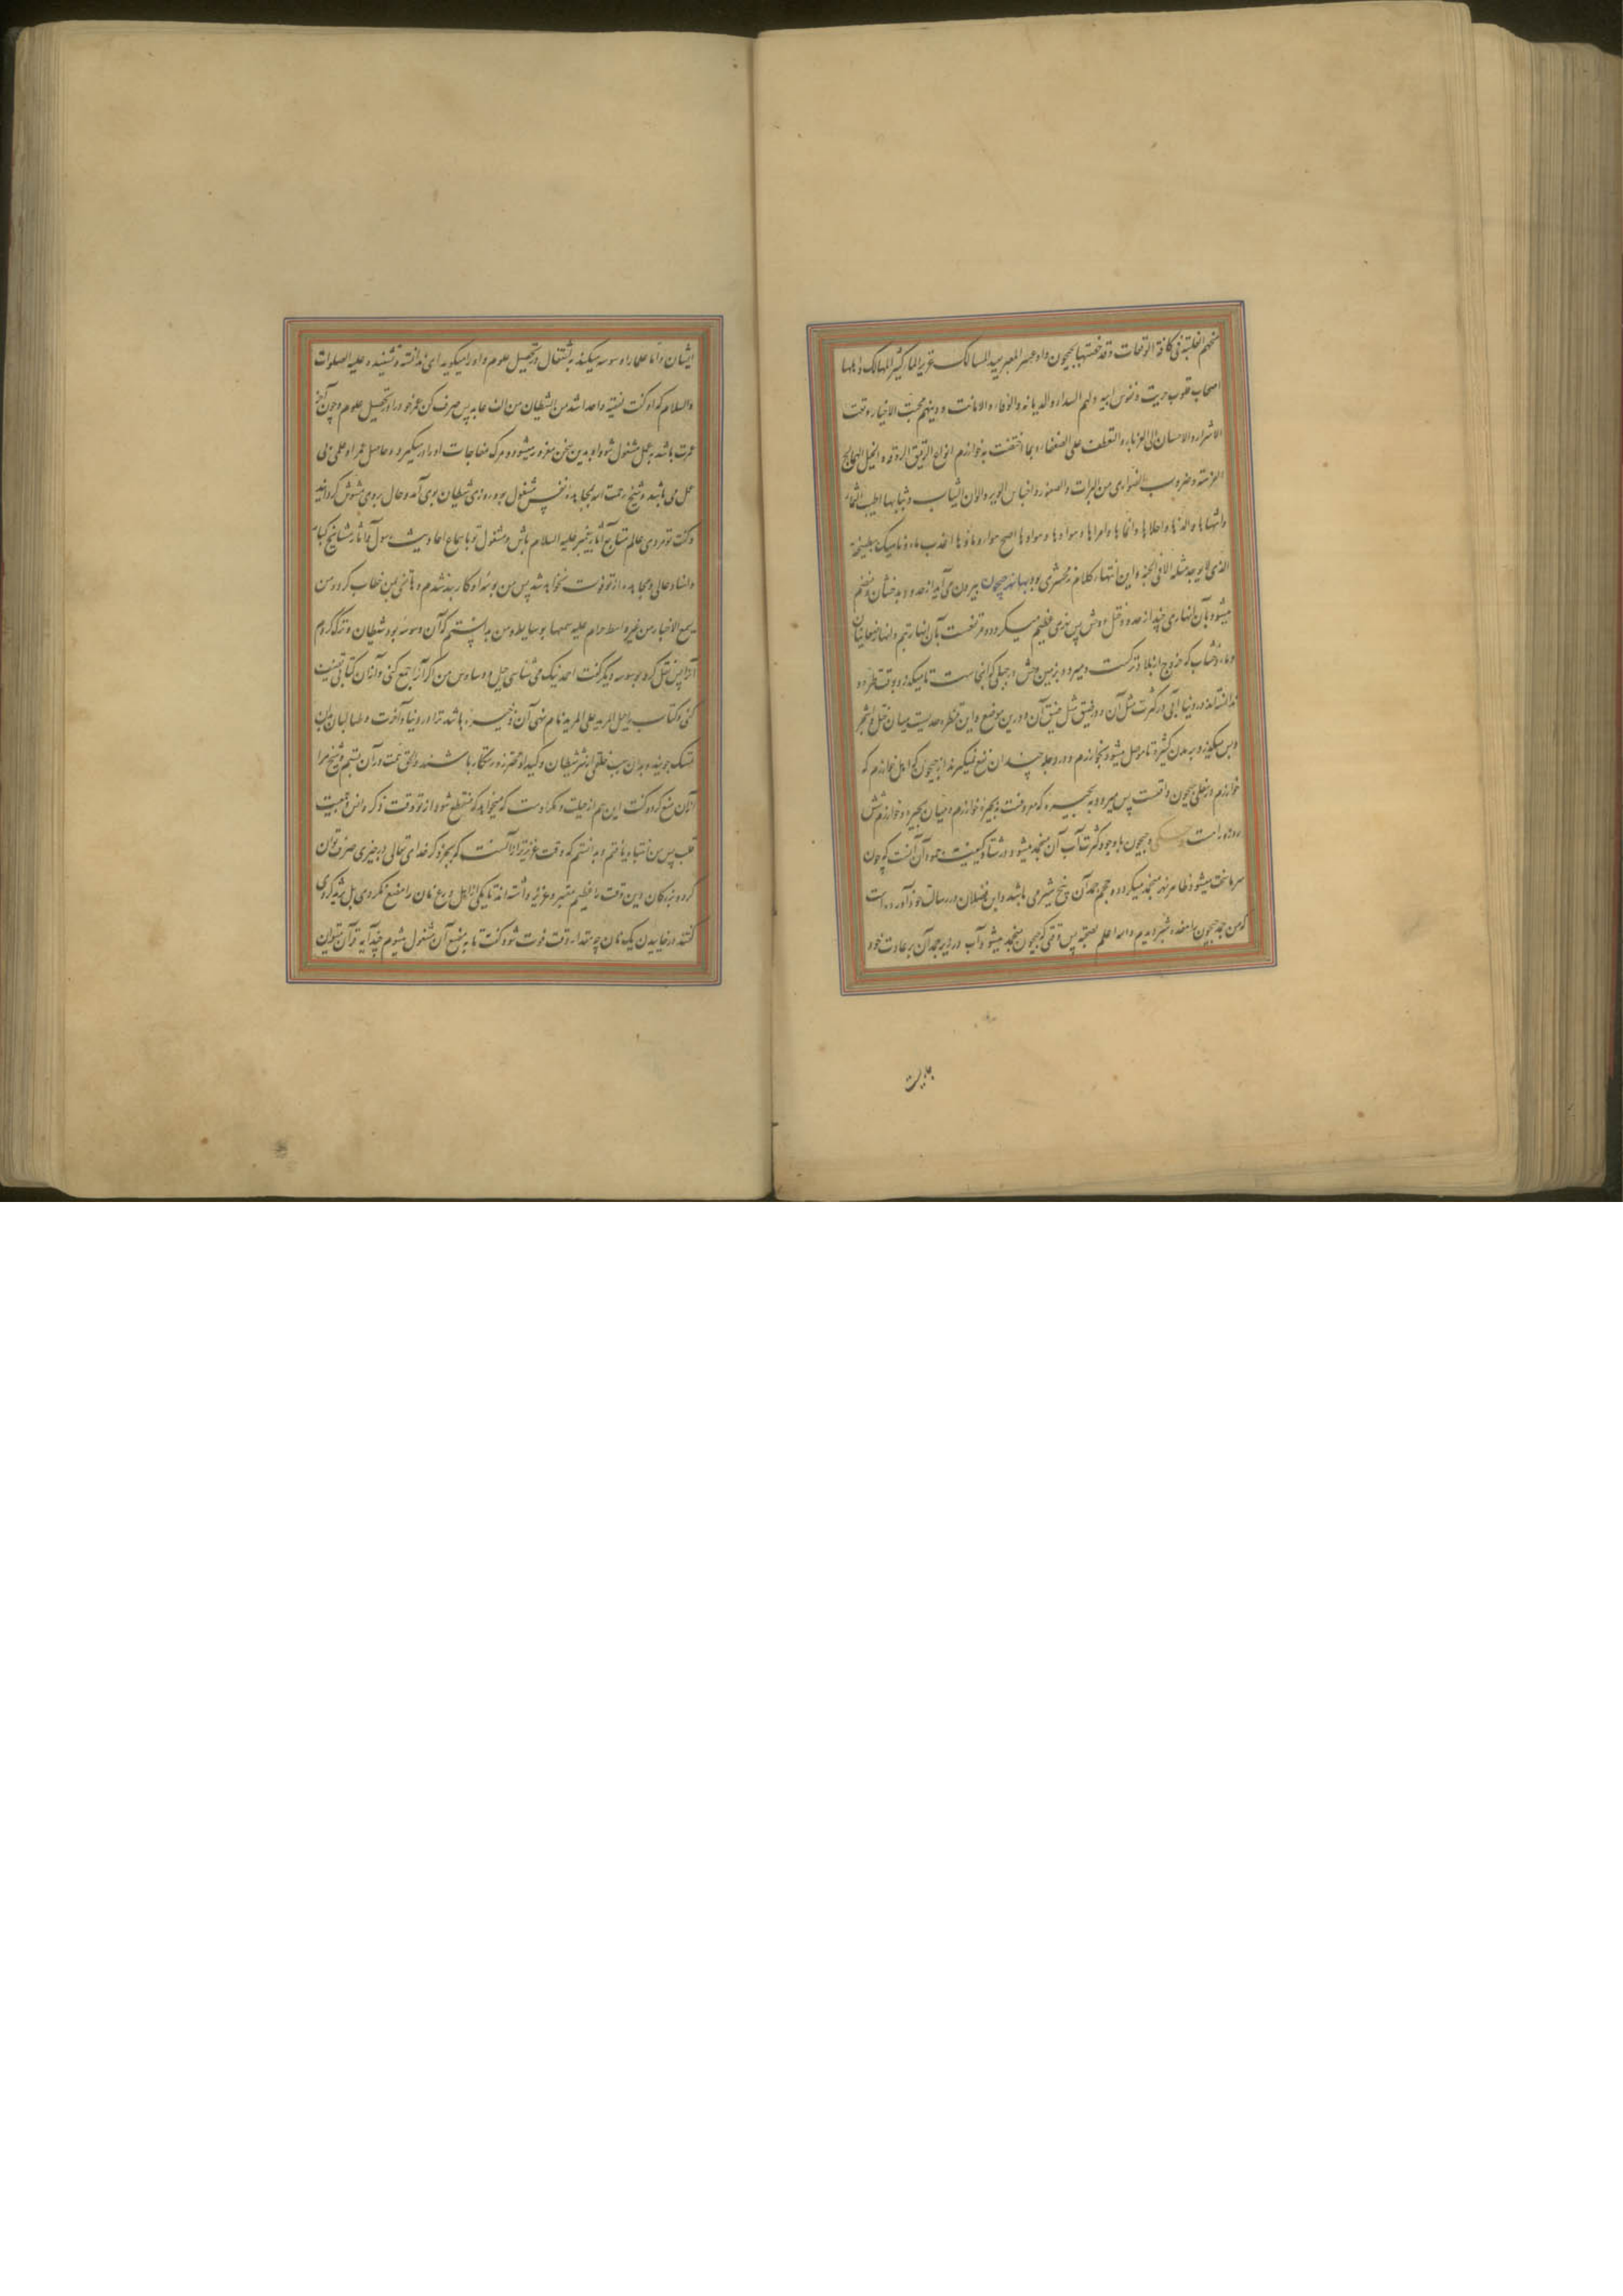 منحهم الغلبة فی کافة الوقعات وقد خصتها بجیحون واد عسر المعبر بعید المسالک غزیر الماء کثیر المهالک واهلها
اصحاب قلوب جریت ونفوس ابیه ولهم السداد والدیانة والوفاء والامانت ودینهم محبت الاخیار ومقت
الاشرار والاحسان الی الغرباء والتعطف علی الضعفاء وبما اختصت به خوارزم انواع الرقیق الروقه والخیل الهمالیج
الفرهة وضروب الضواری من البزات والصقور واجناس الوبر والوان الثیاب وثمارها اطیب الثمار
واشهاها والذها واحلاها وهواوها اصح هوا وماوها اعذب ماء
الذی لا یوجد مثله الا فی الجنة واین انتهاء کلام زمخشری بود بدانکه جیحون بیرون می آید از حدود بدخشان ومنضم
میشود بآن انهار می چند از حدود ختل ووخش پس نهری عظیم میگردد ومرتفعست بآن انهار
وماء وخشاب که خروج از بلاد ترکست ومیرود بزمین وخش در جبلی که آنجاست تا میگذرد بوقت قنطره و
ندانسته اند در دنیا آبی در کثرت مثل آن ودر ضیق مثل ضیق آن درین موضع واین قنطره حدیست میان ختل و واشجرد
وپس میگذرد به مدن کثیره تا موصل میشود بخوارزم ودر وجله چندان نفع نمیگیرند از جیحون که اهل خوارزم که
خوارزم در سفلی جیحون واقعست پس میرود به بحیره که معروفست به بحیره خوارزم ومیان بحیره وخوارزم شش
روزه راهست وجیحون با وجود کثرت آب آن منجمد میشود در شتا وکیفیت جمود آن آنست که چون
سرما سخت میشود ظاهر نهر منجمد میگردد وحجم جمد آن پنج شبر می باشد وابن فضلان در رسالت خود آورده است
که من جمد جیحون را هفده شبر دیدم والله اعلم بصحته پس وقتی که جیحون منجمد میشود آب در زیر جمد آن بر عادت خود
جاریست
ایشان واما علما را وسوسه میکند به اشتغال در تحصیل علوم واو را میگوید ای ندانسته ونشنیده علیه الصلوات
والسلام که او گفت فقیه واحد اشد من الشطان من الف عابد پس صرف کن عمر خود را در تحصیل علوم وچون آخر
عمرت باشد به عمل مشغول شو او بدین سخن مغرور میشود ومرگ مفاجات او را درمیگیرد وحاصل عمر او علمی بی
عمل می باشد وشیخ رحمت الله بمجاهده نفس مشغول بود روزی شیطان بوی آمد وحال بروی مشوش گردانید
وگفت تو مردی عالم متابع آثار پیغمبر علیه السلام باش ومشغول شو با سماع احادیث رسول وآثار مشایخ کبار
واسناد عالی ومجاهده از تو فوت نخواهد شد پس من بوسوسه او کاربند شدم وهاتفی بمن خطاب کرد ومن
یسمع الاخبار من غیر واسطه حرام علیه سمعها بوسایط ومن بدانستم که آن وسوسه بود شیطان وترک کردم
آنرا پس نقل کرد بوسوسه دیگر گفت احمد نیک می شناسی حیل ووساوس من اگر آنرا جمع کنی واز آن کتابی تصنیف
کنی وکتاب حیل المرید علی المرید نام نهی آن ذخیره باشد ترا در دنیا وآخرت وطالبان بدان
تمسک جویند وبدان سبب خلقی از شر شیطان وکید او محترز ورستگار باشند والحق نیت در آن بستم وشیخ مرا
از آن منع کرد وگفت این هم از حیلت ومکر اوست که میخواهد که منقطع شود از تو وقت ذکر وانس وجمعیت
قلب پس من انتباه یافتم وبدانستم که وقت عزیزتر از آنست که بجز ذکر خدای تعالی در چیزی صرف توان
کرد وبزرگان این وقت را عظیم معتبر وعزیز دانسته اند تا یکی از اهل ورع نان را مضغ نکردی بل ثرید کردی
گفتند در خاییدن یک نان چه مقدار وقت فوت شود گفت تا به مضغ آن مشغول میشوم چند آیه قرآن میتوان